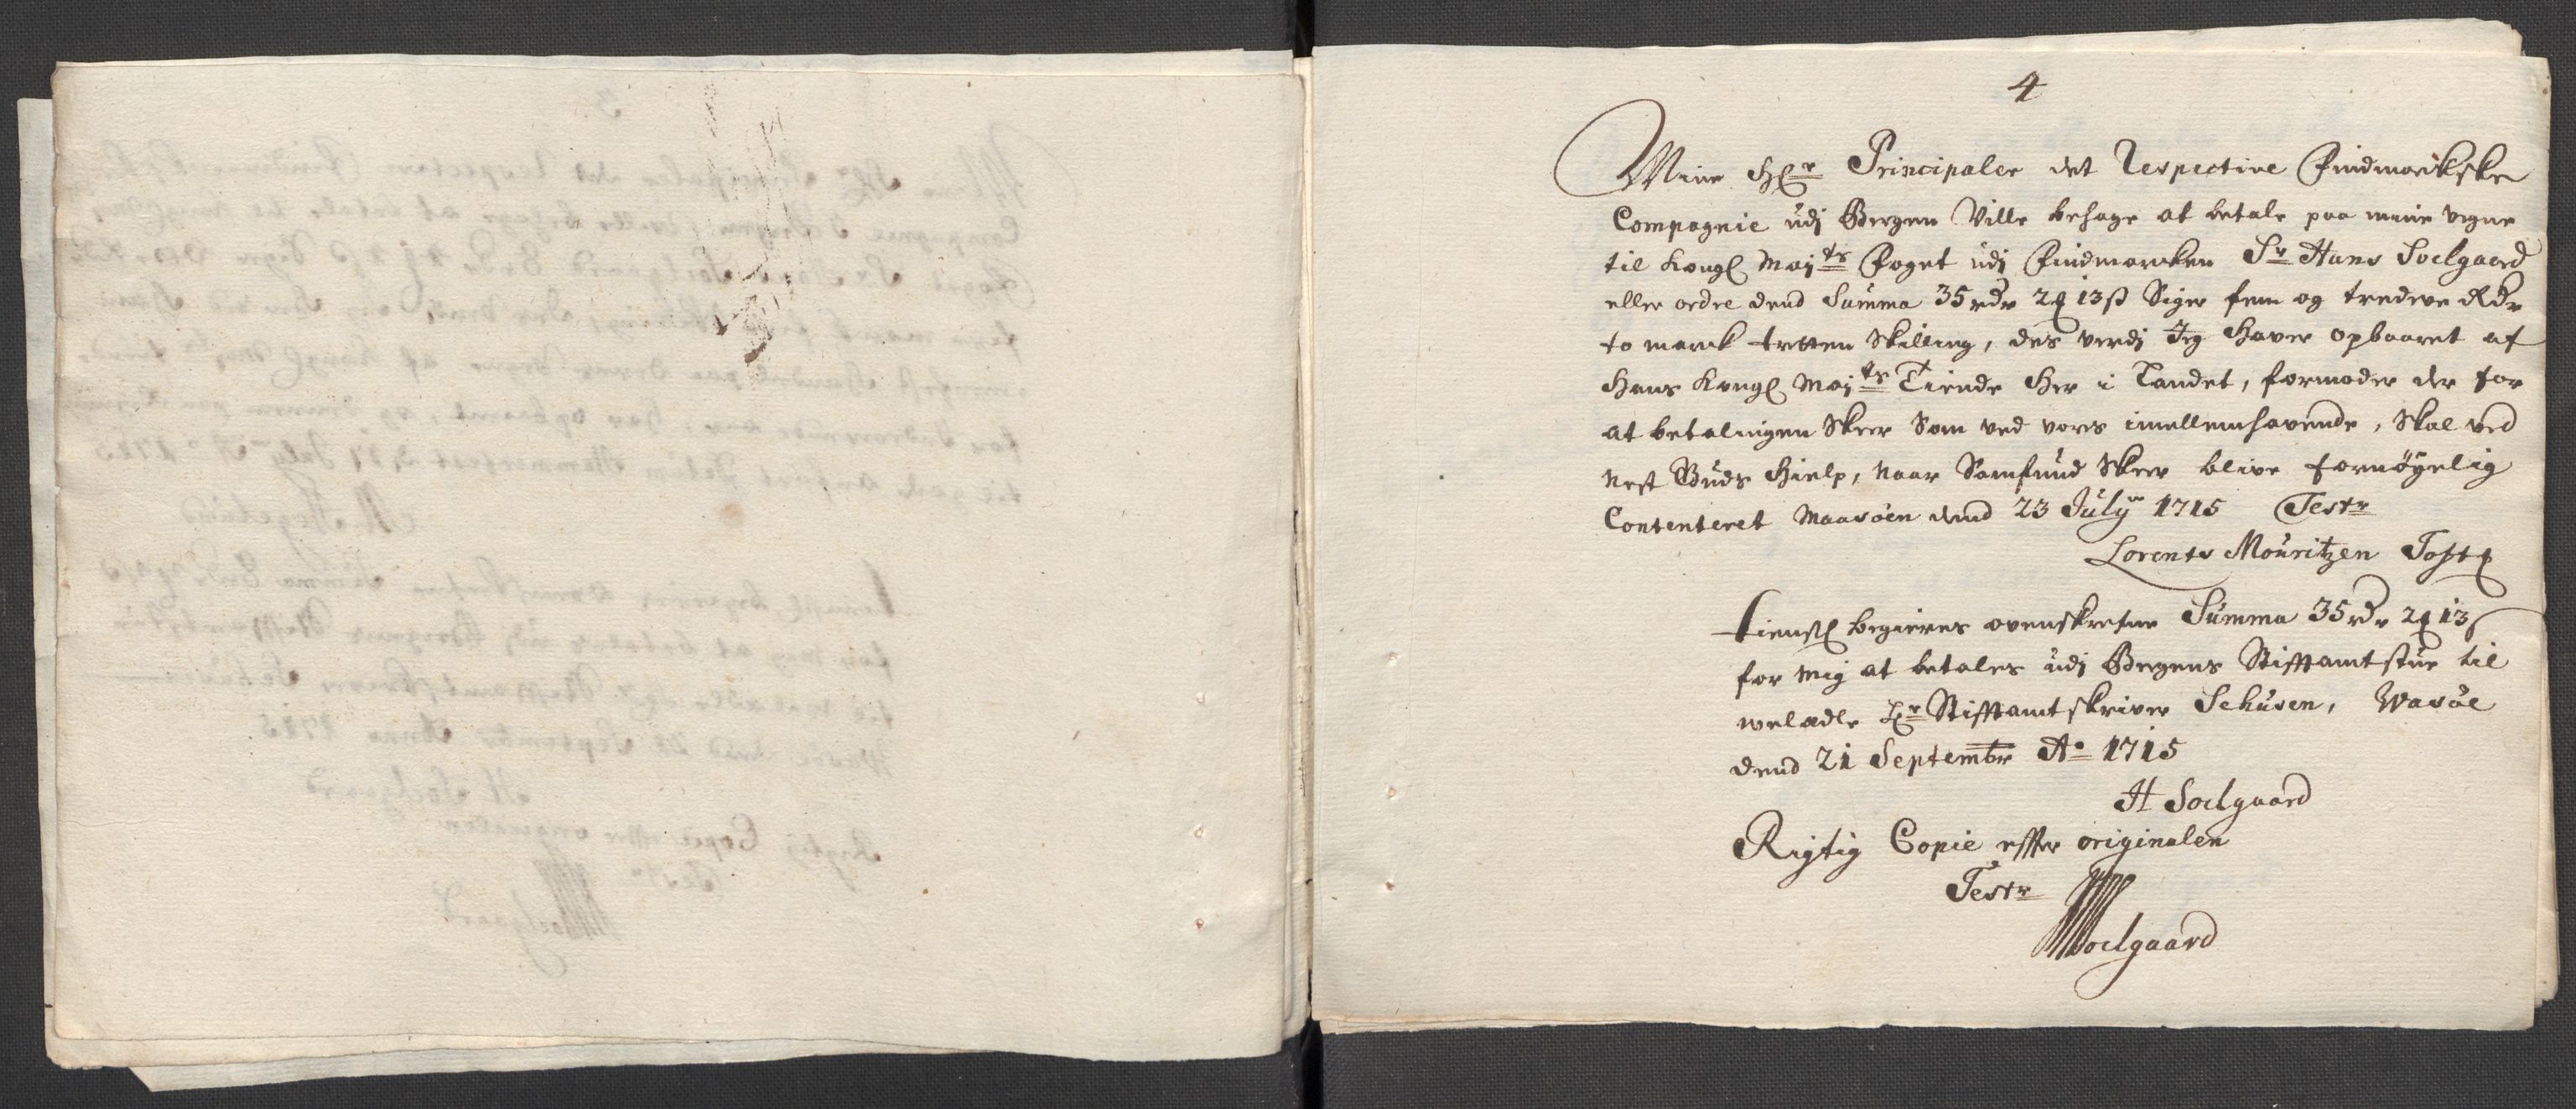 4
Mine Hr Principaler det Respective Findmarkske
Compagnie udj Bergen Ville behage at betale paa mine vegne
til Kongl Mayts Foget udj Findmarcken Sr Hans Soelgaard
eller ordre dend Summa 35 rdr 2 ꝶ 13 ß Siger fem og tredeve Rdr
to marck tretten Skilling, des verdj Jeg Haver opbaaret af
Hans Kongl Mayts Tiende Her i Landet, formoder der for
at betalingen Skeer Som ved vores imellemhavende, Skal ved
nest Guds Hielp, naar Samfund Skeer blive fornøyelig
Contenteret Maasøen dend 23 July 1715 Testr
Lorents Mouritzen Toft
tienstl begieres ovenskrefne Summa 35 rdr 2 ꝶ 13 ß
for mig at betales udj Bergens Stifftamtstue til
weledle Hr Stifftamtskriver Schusen, Wasøe
dend 21 Septembr Ao 1715
H Soelgaard
Rigtig Copie effter originalen
Testr
HSoelgaard